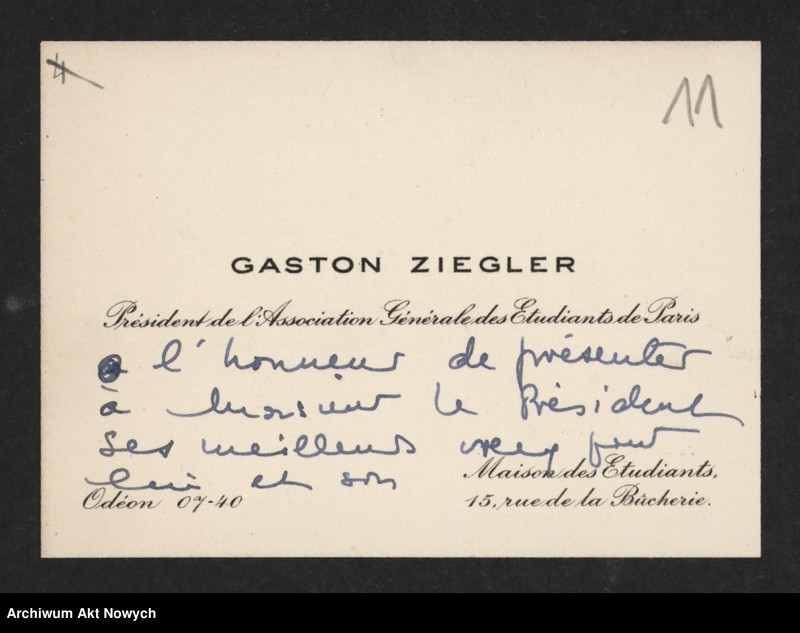 4
11
GASTON ZIEGLER
Président de l'Association Générale des Etudiants de Paris
a l'honneur de présenter
à Monsieur le Président
ses meilleurs vœux pour
lui et son
Maison des Etudiants,
Odéon 07-40
15, rue de la Bûcherie.
Archiwum Akt Nowych